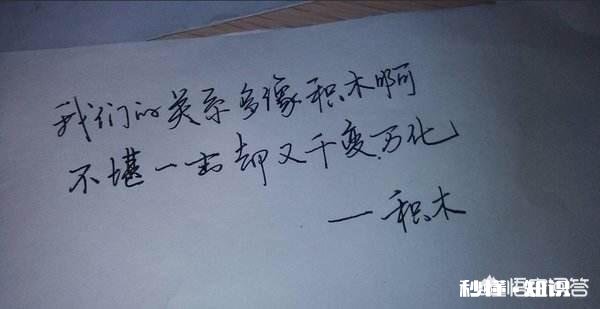 我们的关系多像积木啊
不堪一击却又千变万化
—积木
秒懂·知识
悟空问答